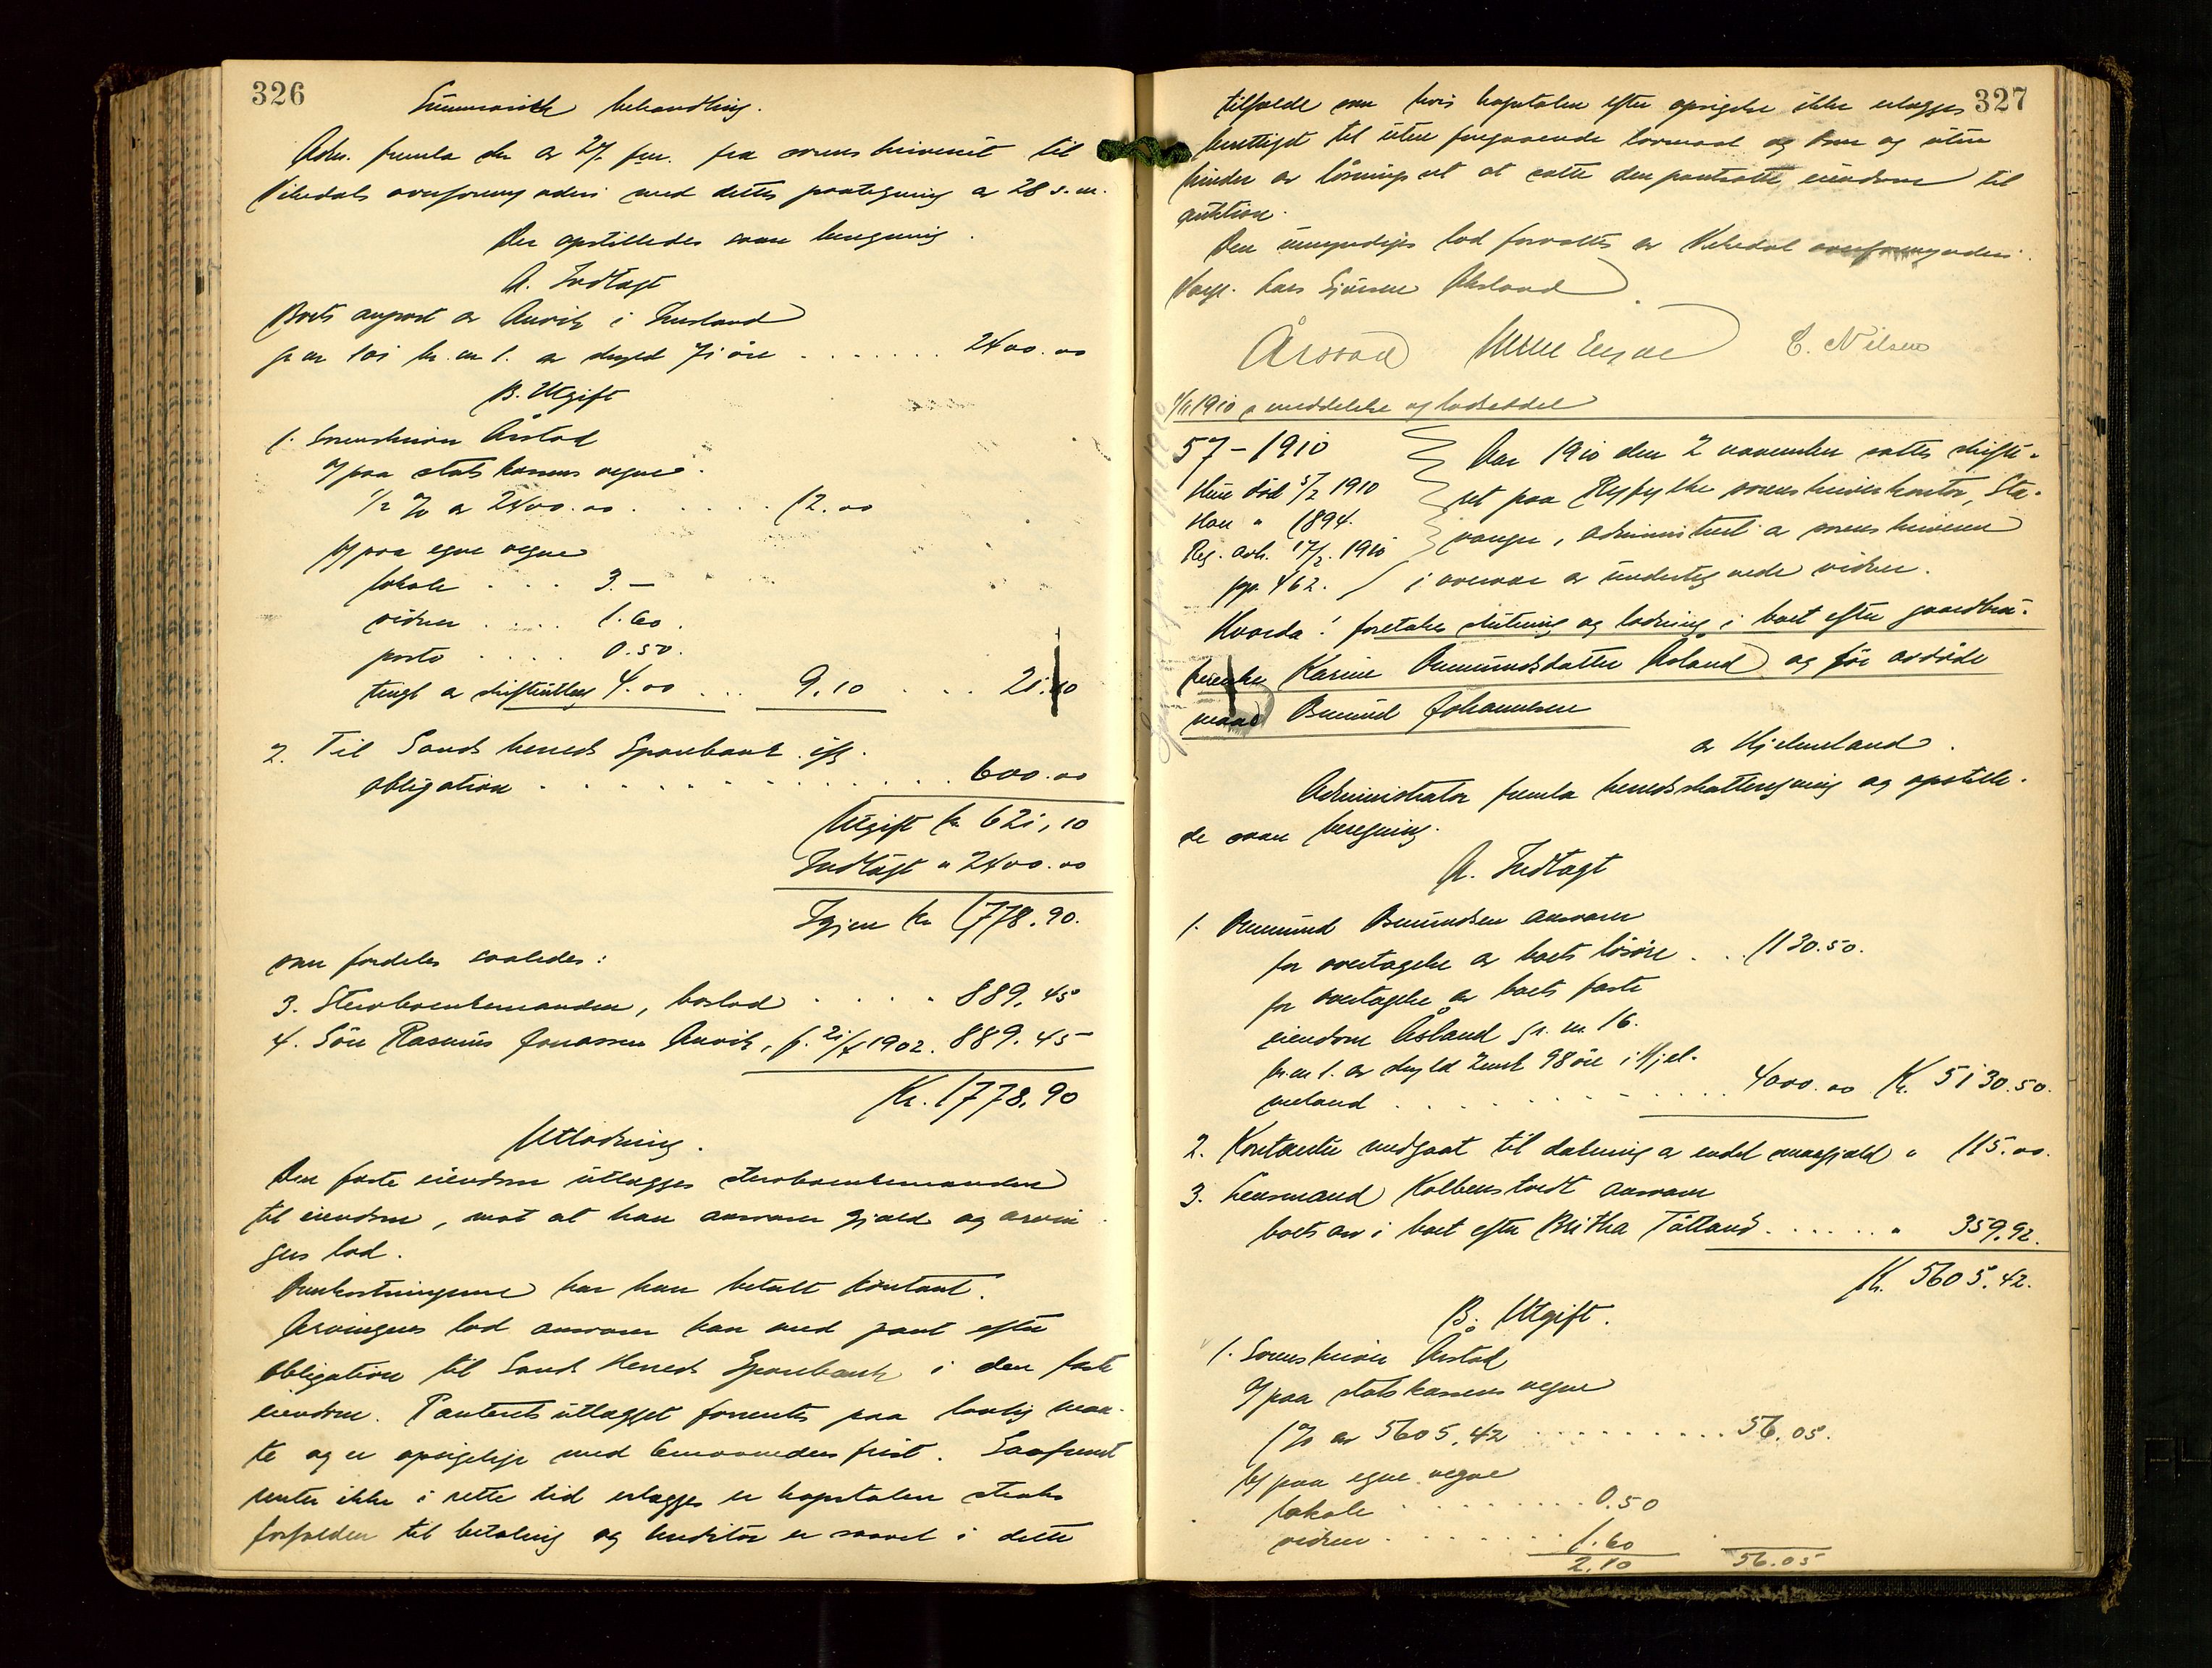 326
Summarisk behandling.
Adm. fremla skr. av 27 f.m. fra sorenskriveriet til
Vikedals overformynderi med dettes paategning av 28 s.m.
Der opstilledes saan beregning.
A. Indtægt
Boets anpart av Anvik i
gr. nr. 101 br. nr. 1. av skyld 71 øre . . . . . . . 2400.00
B. Utgift
1. Sorenskriver Årstad
a/ paa statskassens vegne.
1/2 % av 2400.00 . . . . . . 12.00
b/ paa egne vegne
lokale . . . . 3.—
vidner . . . . . 1.60.
porto . . . . . 0.50.
tingl. av skifteutlæg 4.00 . . . 9.10 . . . . 21.10
2. Til Sands herreds Sparebank ifl.
obligation . . . . . . . . . . . . . 600.00
Utgift kr 621,10
Indtægt " 2400.00
Igjen kr 1778.90.
som fordeles saaledes:
3. Stervboenkemanden, boslod . . . . . 889,45
4. Søn Rasmus Jonassen Anvik, f. 21/4 1902. 889.45
Kr. 1778.90
Utlodning.
Den faste eiendom utlægges stervboenkemanden
til eiendom, mot at han ansvarer gjæld og arvin
gens lod.
Omkostningerne har han betalt kontant.
Arvingens lod ansvarer han med pant efter
obligation til Sands Herreds Sparebank i den faste
eiendom. Panteretsutlægget forrentes paa lovlig maa-
te og er opsigelig med 6 maaneders frist. Saafremt
renter ikke i rette tid erlægges er kapitalen straks
forfalden til betaling og kreditor er saavel i dette
327
tilfælde som hvis kapitalen efter opsigelse ikke erlægges
berettiget til uten foregaaende lovmaal og dom og uten
hinder av løsningsret at sætte den pantsatte eiendom til
auktion.
Den umyndiges lod forvaltes av Vikedal overformynderi.
Verge: Lars Sjursen Øksland
Årstad C. Nilsen
1910 meddelelse og lodseddel
57 – 1910
Hun død 5/2 1910
Han " 1894.
Reg. avh. 17/2. 1910
pag. 462.
Aar 1910 den 2 november sattes skifte-
ret paa Ryfylke sorenskriverkontor, Sta-
vanger, administrert av sorenskriveren
i overvær av undertegnede vidner.
Hvorda: foretokes slutning og lodning i boet efter gaardbru-
kerenke Karine Ommundsdatter Åsland og før avdøde
mand Osmund Johannesen
av Hjelmeland.
Administrator fremla herredskatteregning og opstille-
de saan beregning.
A. Indtægt
1. Ommund Osmundsen ansvarer
for overtagelse av boets løsøre . . . 1130.50.
for overtagelse av boets faste
eiendom Åsland gr. nr. 16.
br. nr. 1. av skyld 2 mrk 98 øre i Hjel-
meland . . . . . . . . . . . . 4000.00 Kr. 5130.50.
2. Kontanter medgaat til dækning av endel smaagjæld " 115.00.
3. Lensmand Kolbenstvedt ansvarer
boets arv i boet efter Britha Tøtland . . . . . . " 359.92.
Kr. 5605.42.
B. Utgift.
1. Sorenskriver Årstad
a/ paa statskassens vegne
1 % av 5605.42 . . . . . . . . . . 56.05.
b/ paa egne vegne
lokale . . . . . . . . . 0.50
vidner . . . . . . . 1.60
2.10 56.05